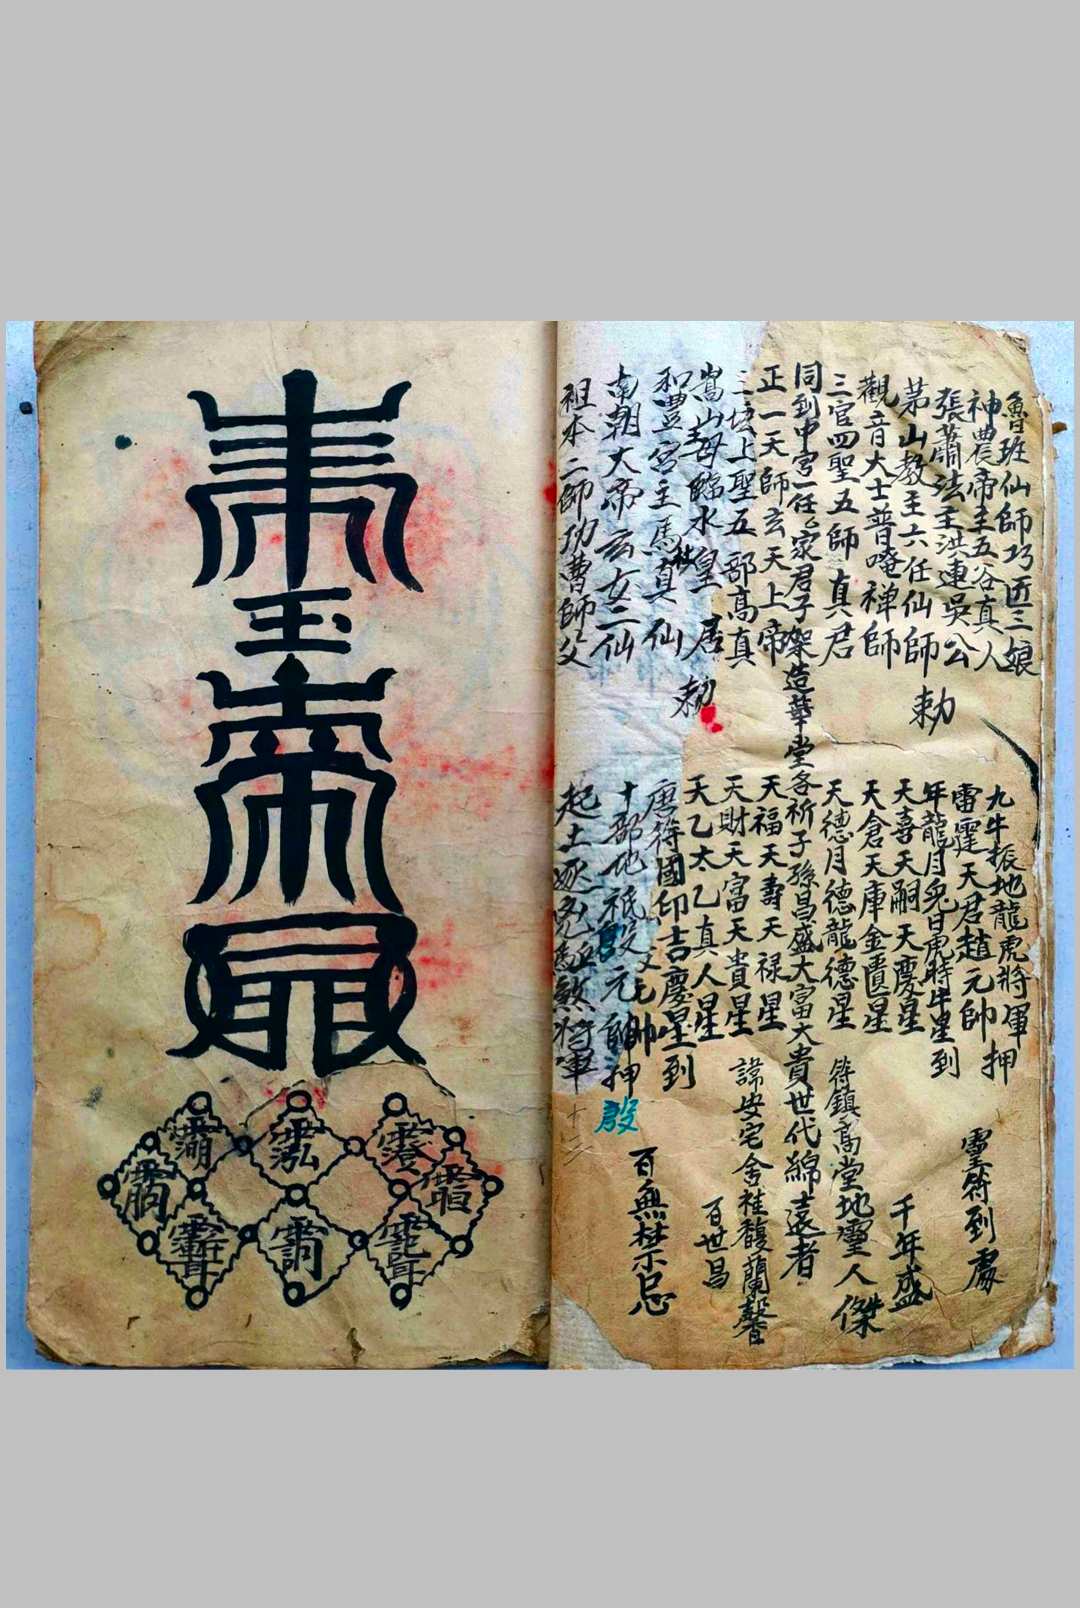 魯班仙師巧匠三娘
神農帝主五谷真人
張蕭法主洪連吳公
茅山教主六任仙師
觀音大士普唵禪師
三官四聖五師真君
同到中宮一任家君子架造華堂各祈子孫昌盛大富大貴世代綿遠者
正一天師玄天上帝
三坛上聖五部高真
嵩山
臨水皇
居
和豊宮主馬真仙
南朝大帝玄女二仙
祖本二師功曹師父
勅
勅
九牛振地龍虎將軍押
雷霆天君趙元帥
年龍月兔日虎時牛星到
天喜天嗣天慶星
天倉天庫金匱星
天德月德龍德星
天福天壽天禄星
天財天富天貴星
天乙太乙真人星
唐符國印吉慶星到
十部地祇殳元帥押
起土
煞將軍
靈符到處
千年盛
符鎮高堂地靈人傑
諱安宅舍桂馥蘭馨
百世昌
百無禁忌
十二
玉